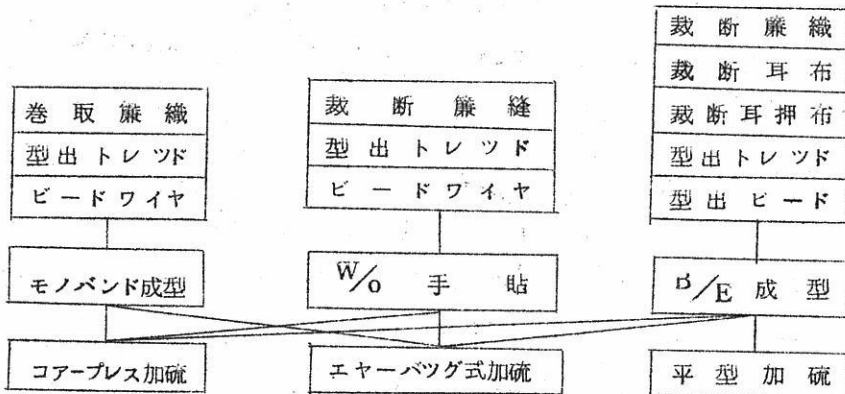 巻取簾織
型出トレツド
ビードワイヤ
モノバンド成型
コアープレス加硫
裁断簾縫
型出トレツド
ビードワイヤ
W/o 手貼
エヤーバツグ式加硫
裁断簾織
裁断耳布
裁断耳押布
型出トレツド
型出ビード
B/E 成型
平型加硫